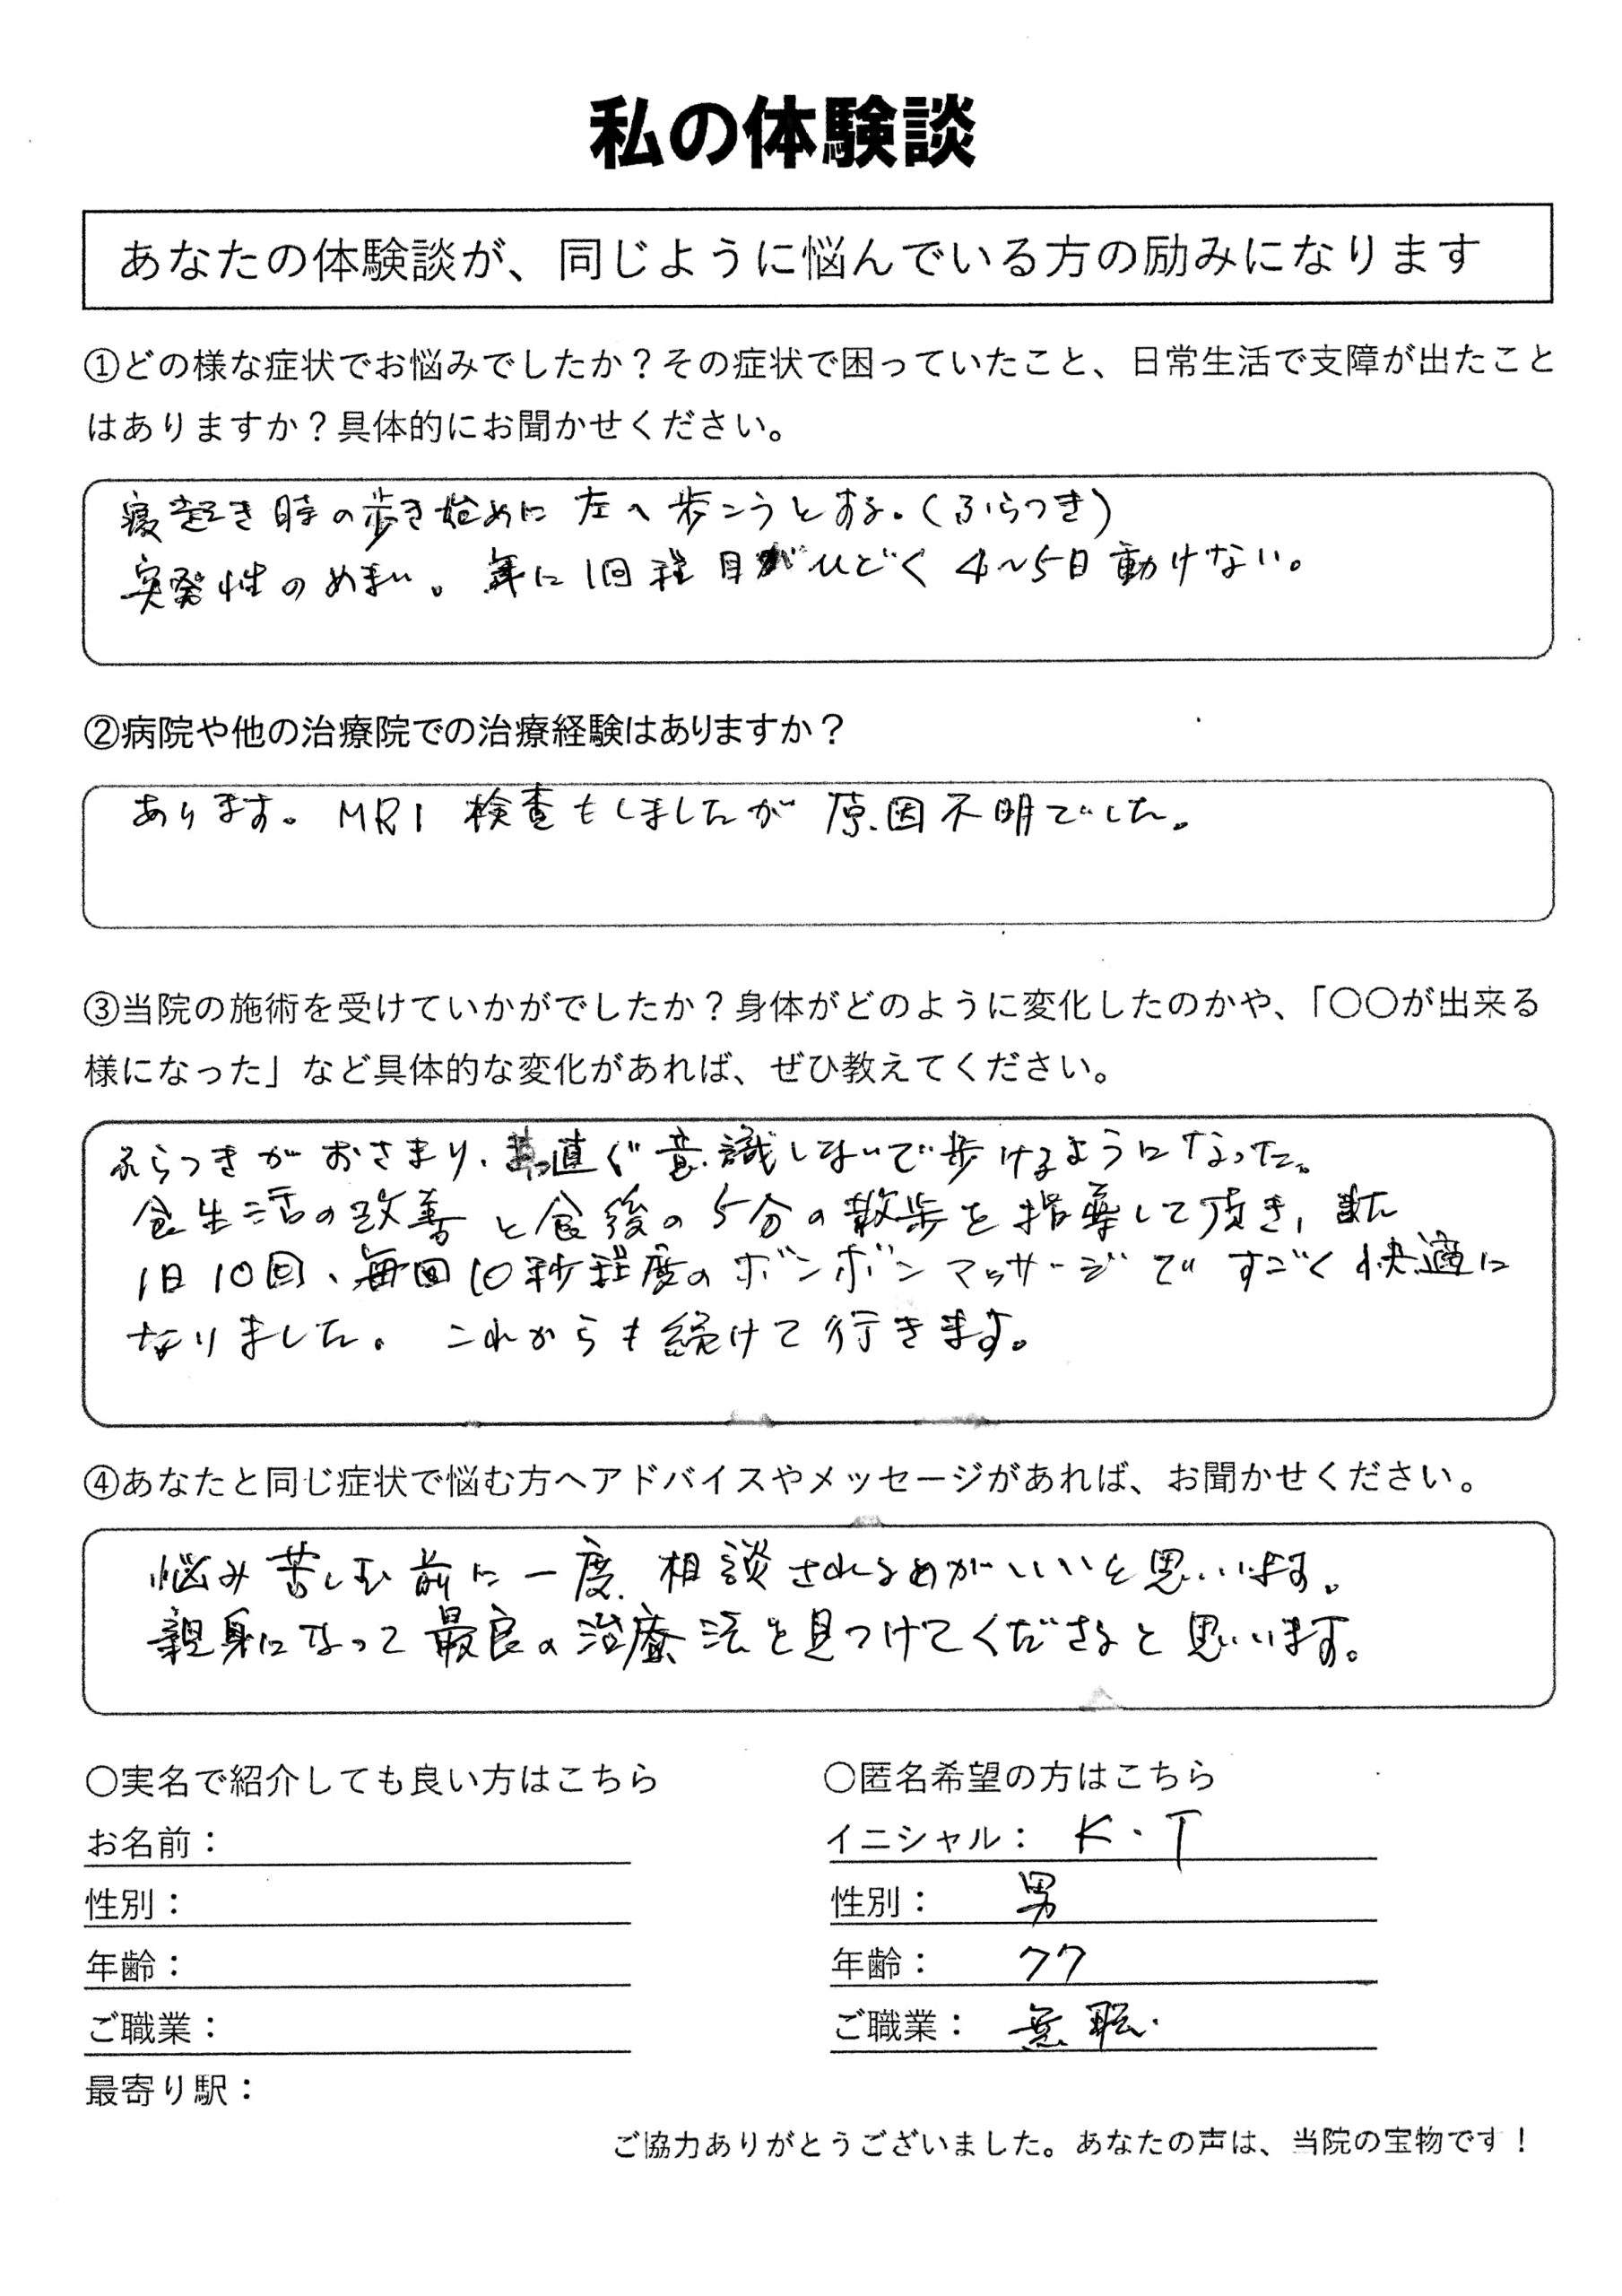 私の体験談
あなたの体験談が、同じように悩んでいる方の励みになります
①どの様な症状でお悩みでしたか？その症状で困っていたこと、日常生活で支障が出たこと
はありますか？具体的にお聞かせください。
寝起き時の歩き始めに左へ歩こうとする。（ふらつき）
突発性のめまい。年に1回程目がひどく4～5日動けない。
②病院や他の治療院での治療経験はありますか？
あります。MRI検査もしましたが原因不明でした。
③当院の施術を受けていかがでしたか？身体がどのように変化したのかや、「〇〇が出来る
様になった」など具体的な変化があれば、ぜひ教えてください。
ふらつきがおさまり、真っ直ぐ意識しないで歩けるようになった。
食生活の改善と食後の5分の散歩を指導して頂き、また
1日10回、毎回10秒程度のボンボンマッサージですごく快適に
なりました。これからも続けて行きます。
④あなたと同じ症状で悩む方へアドバイスやメッセージがあれば、お聞かせください。
悩み苦しむ前に一度、相談されるのがいいと思います。
親身になって最良の治療法を見つけてくださると思います。
〇実名で紹介しても良い方はこちら
お名前：
性別：
年齢：
ご職業：
最寄り駅：
〇匿名希望の方はこちら
イニシャル： K・T
性別： 男
年齢： 77
ご職業： 無職
ご協力ありがとうございました。あなたの声は、当院の宝物です！